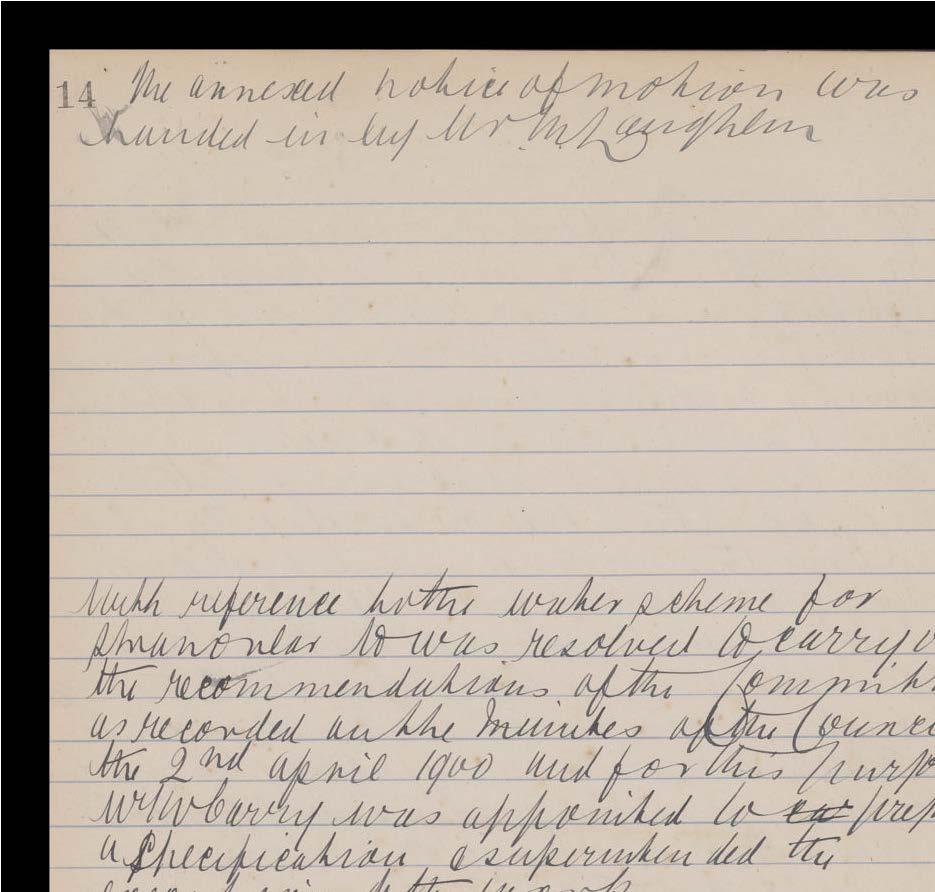 14 The annexed notice of motion was
handed in by Mr McLaughlin
With reference to the water scheme for
Stranorlar it was resolved to carry
the recommendations of the Committ
as recorded on the Minutes of the Counci
the 2nd april 1900 and for this purpo
Mr W Carry was appointed to prep
a specification & superintended the
the work